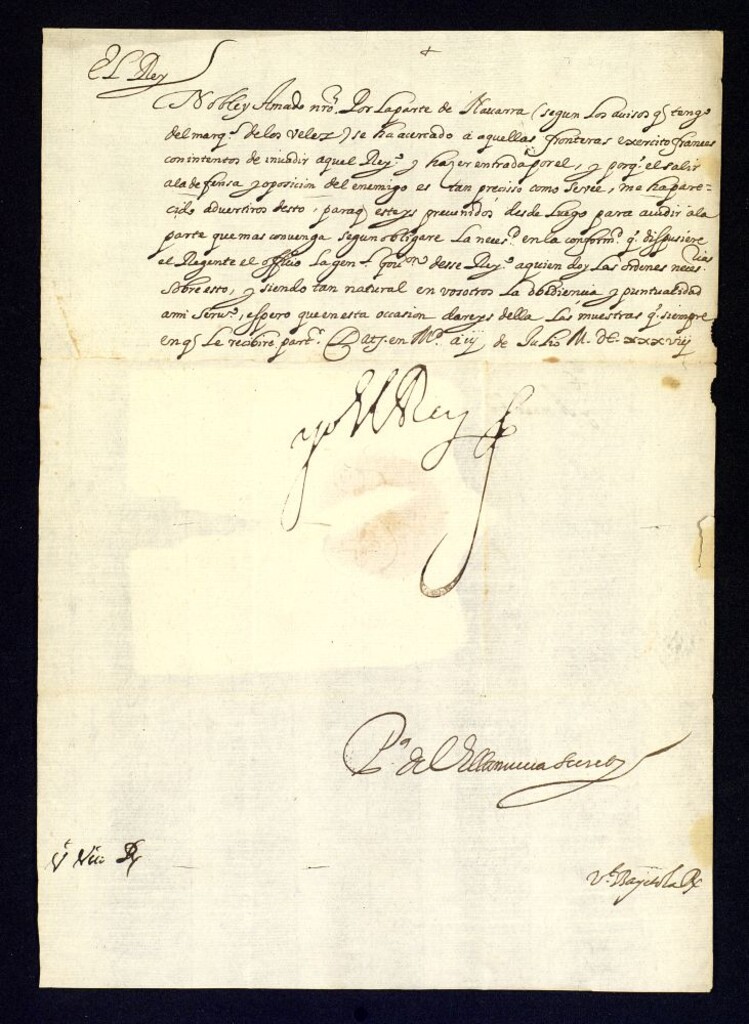 El Rey
Noble y Amado nrõ. Por la parte de Navarra (segun los avisos q̃ tengo
del marq.s de los Velez) se ha acercado a aquellas fronteras exercito frances
con intentos de invadir aquel Rey.o y hazer entrada por el, y porq̃ el salir
a la defensa y oposicion del enemigo es tan preciso como se vee, me ha pare-
cido advertiros desto, paraq̃ esteys prevenidos desde luego para acudir a la
parte que mas convenga segun obligare la neces.d en la conform.d q̃ dispusiere
el Regente el officio la gen.l gou.on desse Rey.o a quien doy las ordenes neces.rias
sobre esto, y siendo tan natural en vosotros la obediencia y puntualidad
a mi serui.o, espero que en esta occasion dareys della las muestras q̃ siempre
en q̃ le recibire part.r Dat. en M.d a iij de Julio M. DC. xxxviij
yo El Rey
P.o de Villanueva Secret.
V.t Vico R.
V.t Bayetola R.